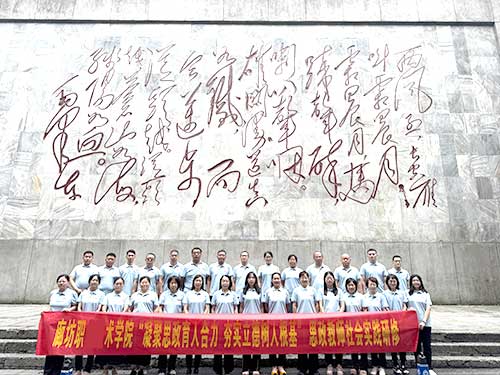 西风烈长空雁
叫霜晨月
霜晨月马
蹄声碎
喇叭声咽
雄关漫道真
如铁而
今迈步
从头越从头
越苍山如海
残阳如血
毛泽东
廊坊职 术学院“凝聚思政育人合力 夯实立德树人根基”思政教师社会实践研修